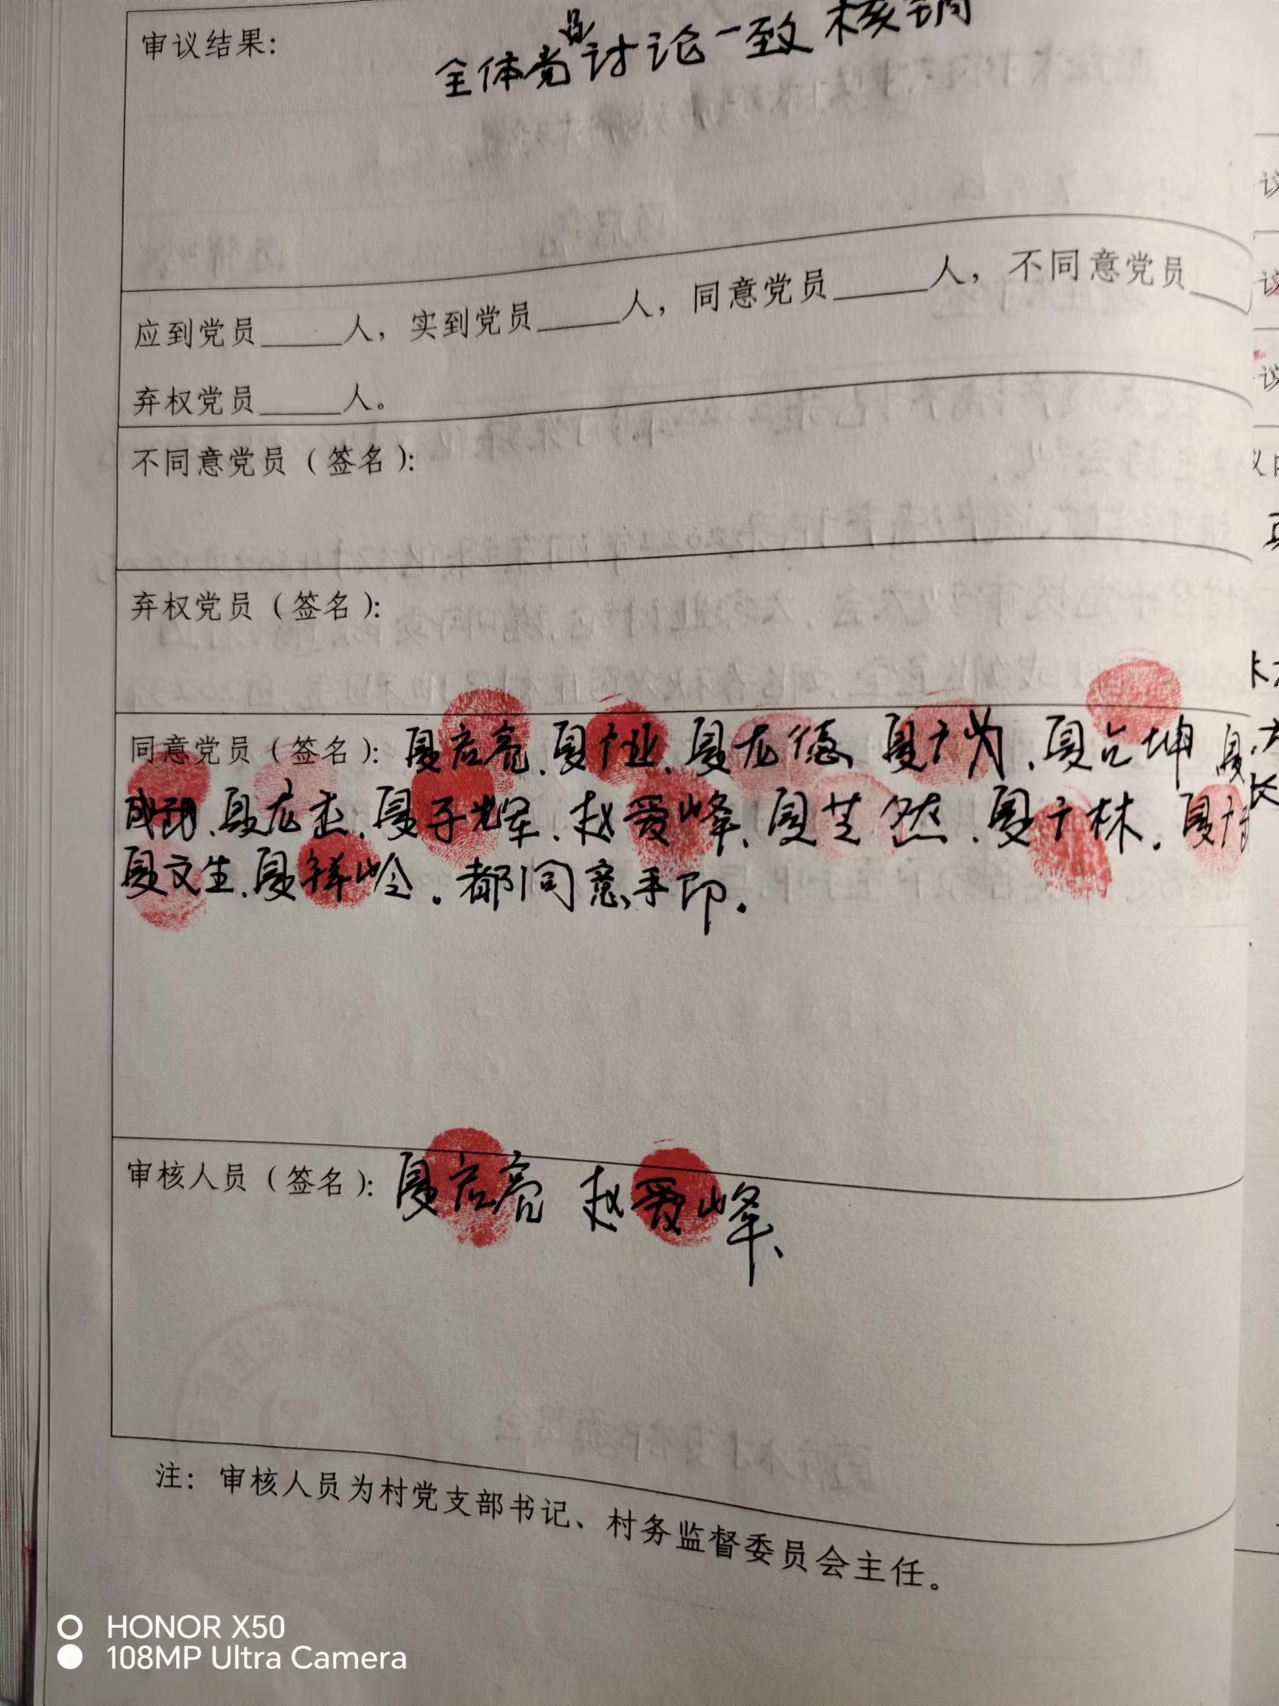 审议结果:
全体党员讨论一致核销
应到党员____人，实到党员____人，同意党员____人，不同意党员
弃权党员____人。
不同意党员（签名）:
弃权党员（签名）:
同意党员（签名）: 夏启亮、夏广业、夏龙德 夏广为、夏占坤 夏
夏龙杰、夏子辉、赵爱峰、夏芝然、夏广林。夏
夏文生、夏祥岭。都同意手印。
审核人员（签名）: 夏启亮 赵爱峰
注：审核人员为村党支部书记、村务监督委员会主任。
HONOR X50
108MP Ultra Camera